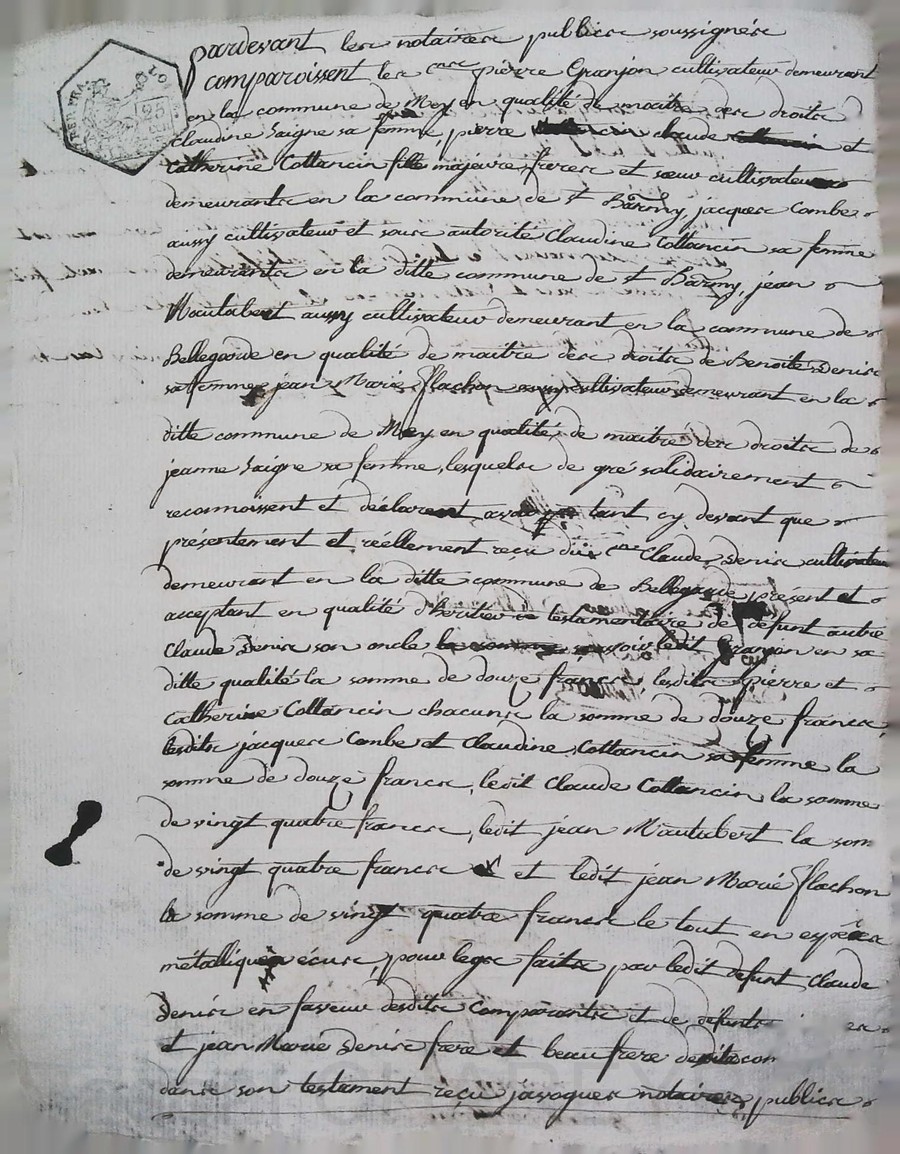 pardevant les notaires publics soussignés
comparoissent les cens pierre Granjon cultivateur demeurant
en la commune de Mey en qualité de maitre des droits
Claudine Saigne sa femme, pierre claude et
Catherine Cottancin fille majeure freres et sœur cultivateurs
demeurants en la commune de st Barmy jacques Combe
aussy cultivateur et sous autorité Claudine Cottancin sa femme
demeurants en la ditte commune de st Barmy, jean
Mautubert aussy cultivateur demeurant en la commune de
Bellegarde en qualité de maitre des droits de Benoite Denis
sa femme jean Marie flachon aussy cultivateur demeurant en la
ditte commune de Mey en qualité de maitre des droits de
jeanne Saigne sa femme, lesquels de gré solidairement
reconnoissent et déclarent avoir tant cy devant que
présentement et réellement reçu du cen Claude Denis cultivateur
demeurant en la ditte commune de Bellegarde présent et
acceptant en qualité d'heritier testamentaire de défunt autre
Claude Denis son oncle ledit Granjon en sa
ditte qualité la somme de douze francs lesdits pierre et
Catherine Cottancin chacuns la somme de douze francs,
lesdits jacques Combe et Claudine Cottancin sa femme la
somme de douze francs, ledit Claude Cottancin la somme
de vingt quatre francs, ledit jean Mautubert la som
de vingt quatre francs et ledit jean Marie flachon
la somme de vingt quatre francs le tout en espèces
métalliques écus, pour legs faits par ledit défunt Claude
Denis en faveur desdits Comparants et de défunts
et jean Marie Denis frere et beau frere desdits com
dans son testament reçu javogues notaires publics